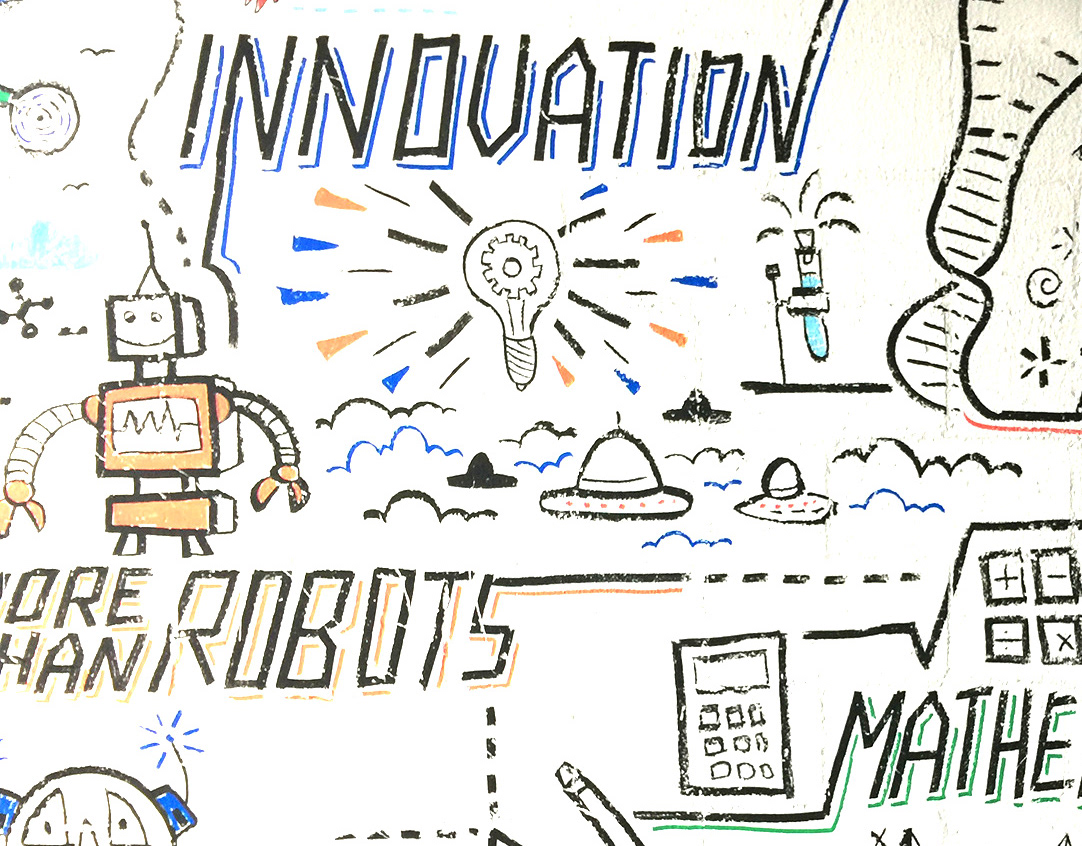 INNOVATION
ORE
HAN ROBOTS
+ -
- x
MATHE